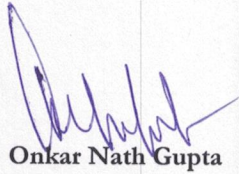 Onkar Nath Gupta